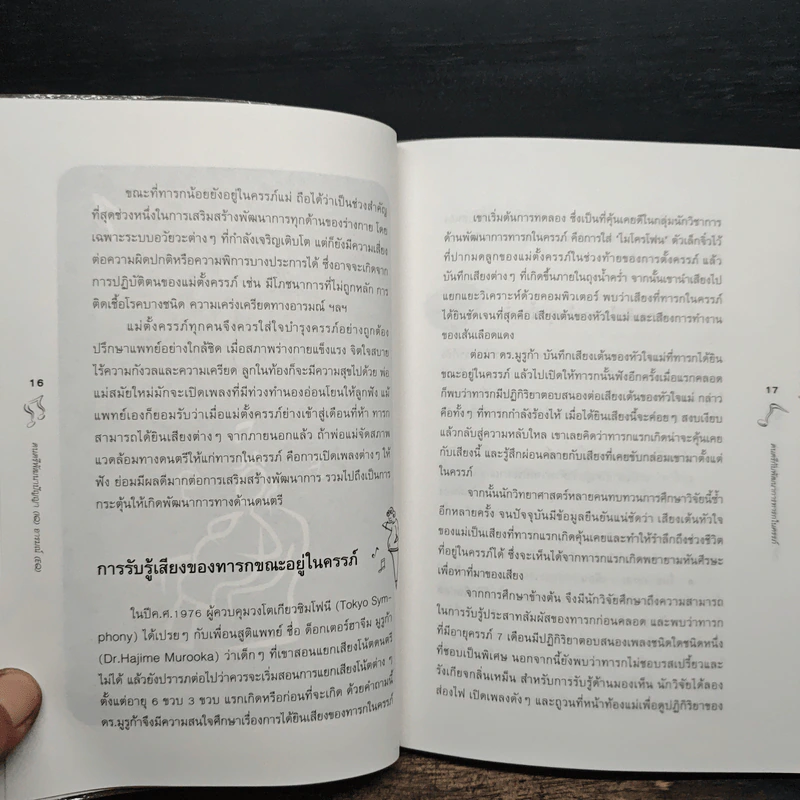 ขณะที่ทารกน้อยยังอยู่ในครรภ์แม่ ถือได้ว่าเป็นช่วงสำคัญ
ที่สุดช่วงหนึ่งในการเสริมสร้างพัฒนาการทุกด้านของร่างกาย โดย
เฉพาะระบบอวัยวะต่างๆ ที่กำลังเจริญเติบโต แต่ก็ยังมีความเสี่ยง
ต่อความผิดปกติหรือความพิการบางประการได้ ซึ่งอาจจะเกิดจาก
การปฏิบัติตนของแม่ตั้งครรภ์ เช่น มีโภชนาการที่ไม่ถูกหลัก การ
ติดเชื้อโรคบางชนิด ความเคร่งเครียดทางอารมณ์ ฯลฯ
แม่ตั้งครรภ์ทุกคนจึงควรใส่ใจบำรุงครรภ์อย่างถูกต้อง
ปรึกษาแพทย์อย่างใกล้ชิด เมื่อสภาพร่างกายแข็งแรง จิตใจสบาย
ไร้ความกังวลและความเครียด ลูกในท้องก็จะมีความสุขไปด้วย พ่อ
แม่สมัยใหม่มักจะเปิดเพลงที่มีท่วงทำนองอ่อนโยนให้ลูกฟัง แม้
แพทย์เองก็ยอมรับว่าเมื่อแม่ตั้งครรภ์ย่างเข้าสู่เดือนที่ห้า ทารก
สามารถได้ยินเสียงต่างๆ จากภายนอกแล้ว ถ้าพ่อแม่จัดสภาพ
แวดล้อมทางดนตรีให้แก่ทารกในครรภ์ คือการเปิดเพลงต่างๆ ให้
ฟัง ย่อมมีผลดีมากต่อการเสริมสร้างพัฒนาการ รวมไปถึงเป็นการ
กระตุ้นให้เกิดพัฒนาการทางด้านดนตรี
การรับรู้เสียงของทารกขณะอยู่ในครรภ์
ในปีค.ศ.1976 ผู้ควบคุมวงโตเกียวซิมโฟนี (Tokyo Sym-
phony) ได้เปรยๆ กับเพื่อนสูติแพทย์ ชื่อ ด็อกเตอร์ฮาจีม มูรูก้า
(Dr.Hajime Murooka) ว่าเด็กๆ ที่เขาสอนแยกเสียงโน้ตดนตรี
ไม่ได้ แล้วยังปรารภต่อไปว่าควรจะเริ่มสอนการแยกเสียงโน้ตต่าง ๆ
ตั้งแต่อายุ 6 ขวบ 3 ขวบ แรกเกิดหรือก่อนที่จะเกิด ด้วยคำถามนี้
ดร.มูรูก้าจึงมีความสนใจศึกษาเรื่องการได้ยินเสียงของทารกในครรภ์
16
ดนตรีพัฒนาปัญญา (IQ) อารมณ์ (EQ)
เขาเริ่มต้นการทดลอง ซึ่งเป็นที่คุ้นเคยดีในกลุ่มนักวิชาการ
ด้านพัฒนาการทารกในครรภ์ คือการใส่ "ไมโครโฟน" ตัวเล็กจิ๋วไว้
ที่ปากมดลูกของแม่ตั้งครรภ์ในช่วงท้ายของการตั้งครรภ์ แล้ว
บันทึกเสียงต่างๆ ที่เกิดขึ้นภายในถุงน้ำคร่ำ จากนั้นเขานำเสียงไป
แยกแยะวิเคราะห์ด้วยคอมพิวเตอร์ พบว่าเสียงที่ทารกในครรภ์
ได้ยินชัดเจนที่สุดคือ เสียงเต้นของหัวใจแม่ และเสียงการทำงาน
ของเส้นเลือดแดง
ต่อมา ดร.มูรูก้า บันทึกเสียงเต้นของหัวใจแม่ที่ทารกได้ยิน
ขณะอยู่ในครรภ์ แล้วไปเปิดให้ทารกนั้นฟังอีกครั้งเมื่อแรกคลอด
ก็พบว่าทารกมีปฏิกิริยาตอบสนองต่อเสียงเต้นของหัวใจแม่ กล่าว
คือทั้งๆ ที่ทารกกำลังร้องไห้ เมื่อได้ยินเสียงนี้จะค่อยๆ สงบเงียบ
แล้วกลับสู่ความหลับใหล เขาเลยคิดว่าทารกแรกเกิดน่าจะคุ้นเคย
กับเสียงนี้ และรู้สึกผ่อนคลายกับเสียงที่เคยขับกล่อมเขามาตั้งแต่
ในครรภ์
จากนั้นนักวิทยาศาสตร์หลายคนทบทวนการศึกษาวิจัยนี้ซ้ำ
อีกหลายครั้ง จนปัจจุบันมีข้อมูลยืนยันแน่ชัดว่า เสียงเต้นหัวใจ
ของแม่เป็นเสียงที่ทารกแรกเกิดคุ้นเคยและทำให้รำลึกถึงช่วงชีวิต
ที่อยู่ในครรภ์ได้ ซึ่งจะเห็นได้จากทารกแรกเกิดพยายามหันศีรษะ
เพื่อหาที่มาของเสียง
จากการศึกษาข้างต้น จึงมีนักวิจัยศึกษาถึงความสามารถ
ในการรับรู้ประสาทสัมผัสของทารกก่อนคลอด และพบว่าทารก
ที่มีอายุครรภ์ 7 เดือนมีปฏิกิริยาตอบสนองเพลงชนิดใดชนิดหนึ่ง
ที่ชอบเป็นพิเศษ นอกจากนี้ยังพบว่าทารกไม่ชอบรสเปรี้ยวและ
รังเกียจกลิ่นเหม็น สำหรับการรับรู้ด้านมองเห็น นักวิจัยได้ลอง
ส่องไฟ เปิดเพลงดังๆ และถูวนที่หน้าท้องแม่เพื่อดูปฏิกิริยาของ
17
ดนตรีกับพัฒนาการทารกในครรภ์